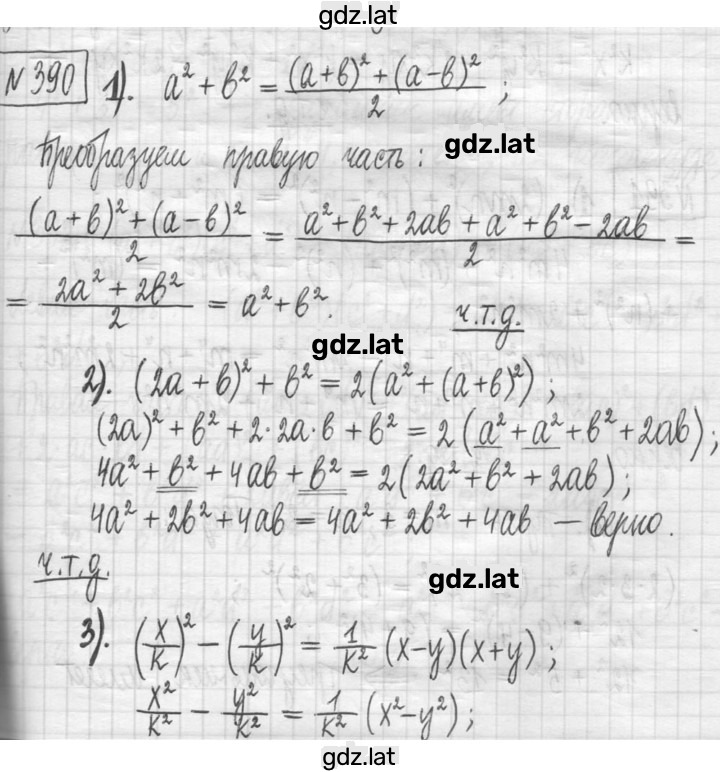 gdz.lat
N 390 1). a² + b² = ((a+b)² + (a-b)²)/2 ;
Преобразуем правую часть: gdz.lat
((a+b)² + (a-b)²)/2 = (a² + b² + 2ab + a² + b² - 2ab)/2 =
= (2a² + 2b²)/2 = a² + b².
ч.т.д.
gdz.lat
2). (2a + b)² + b² = 2(a² + (a+b)²) ;
(2a)² + b² + 2·2a·b + b² = 2(a² + a² + b² + 2ab) ;
4a² + b² + 4ab + b² = 2(2a² + b² + 2ab) ;
4a² + 2b² + 4ab = 4a² + 2b² + 4ab – верно.
ч.т.д.
gdz.lat
3). (x/k)² - (y/k)² = 1/k² (x-y)(x+y) ;
x²/k² - y²/k² = 1/k² (x²-y²) ;
gdz.lat